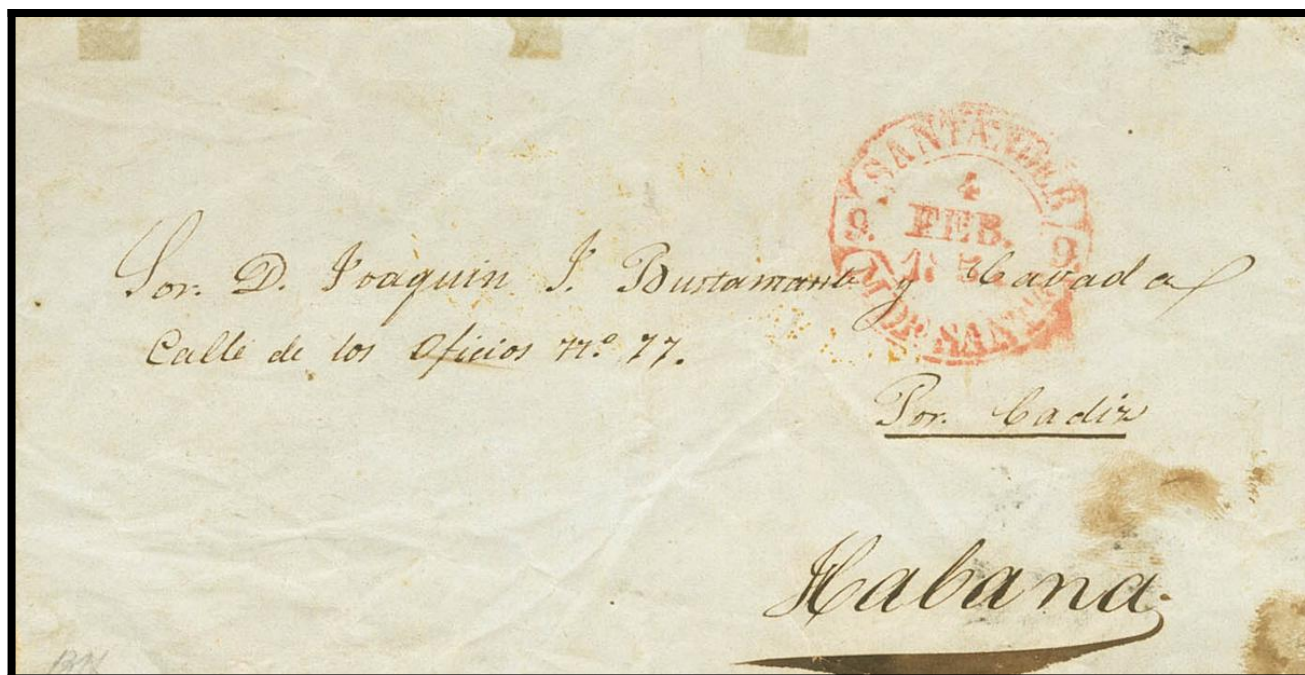 SANTANDER
4
FEB.
9. 9.
Sor. D. Joaquin J. Bustamante y Cavada
Calle de los Oficios nº 77.
Por. Cadiz
Habana.